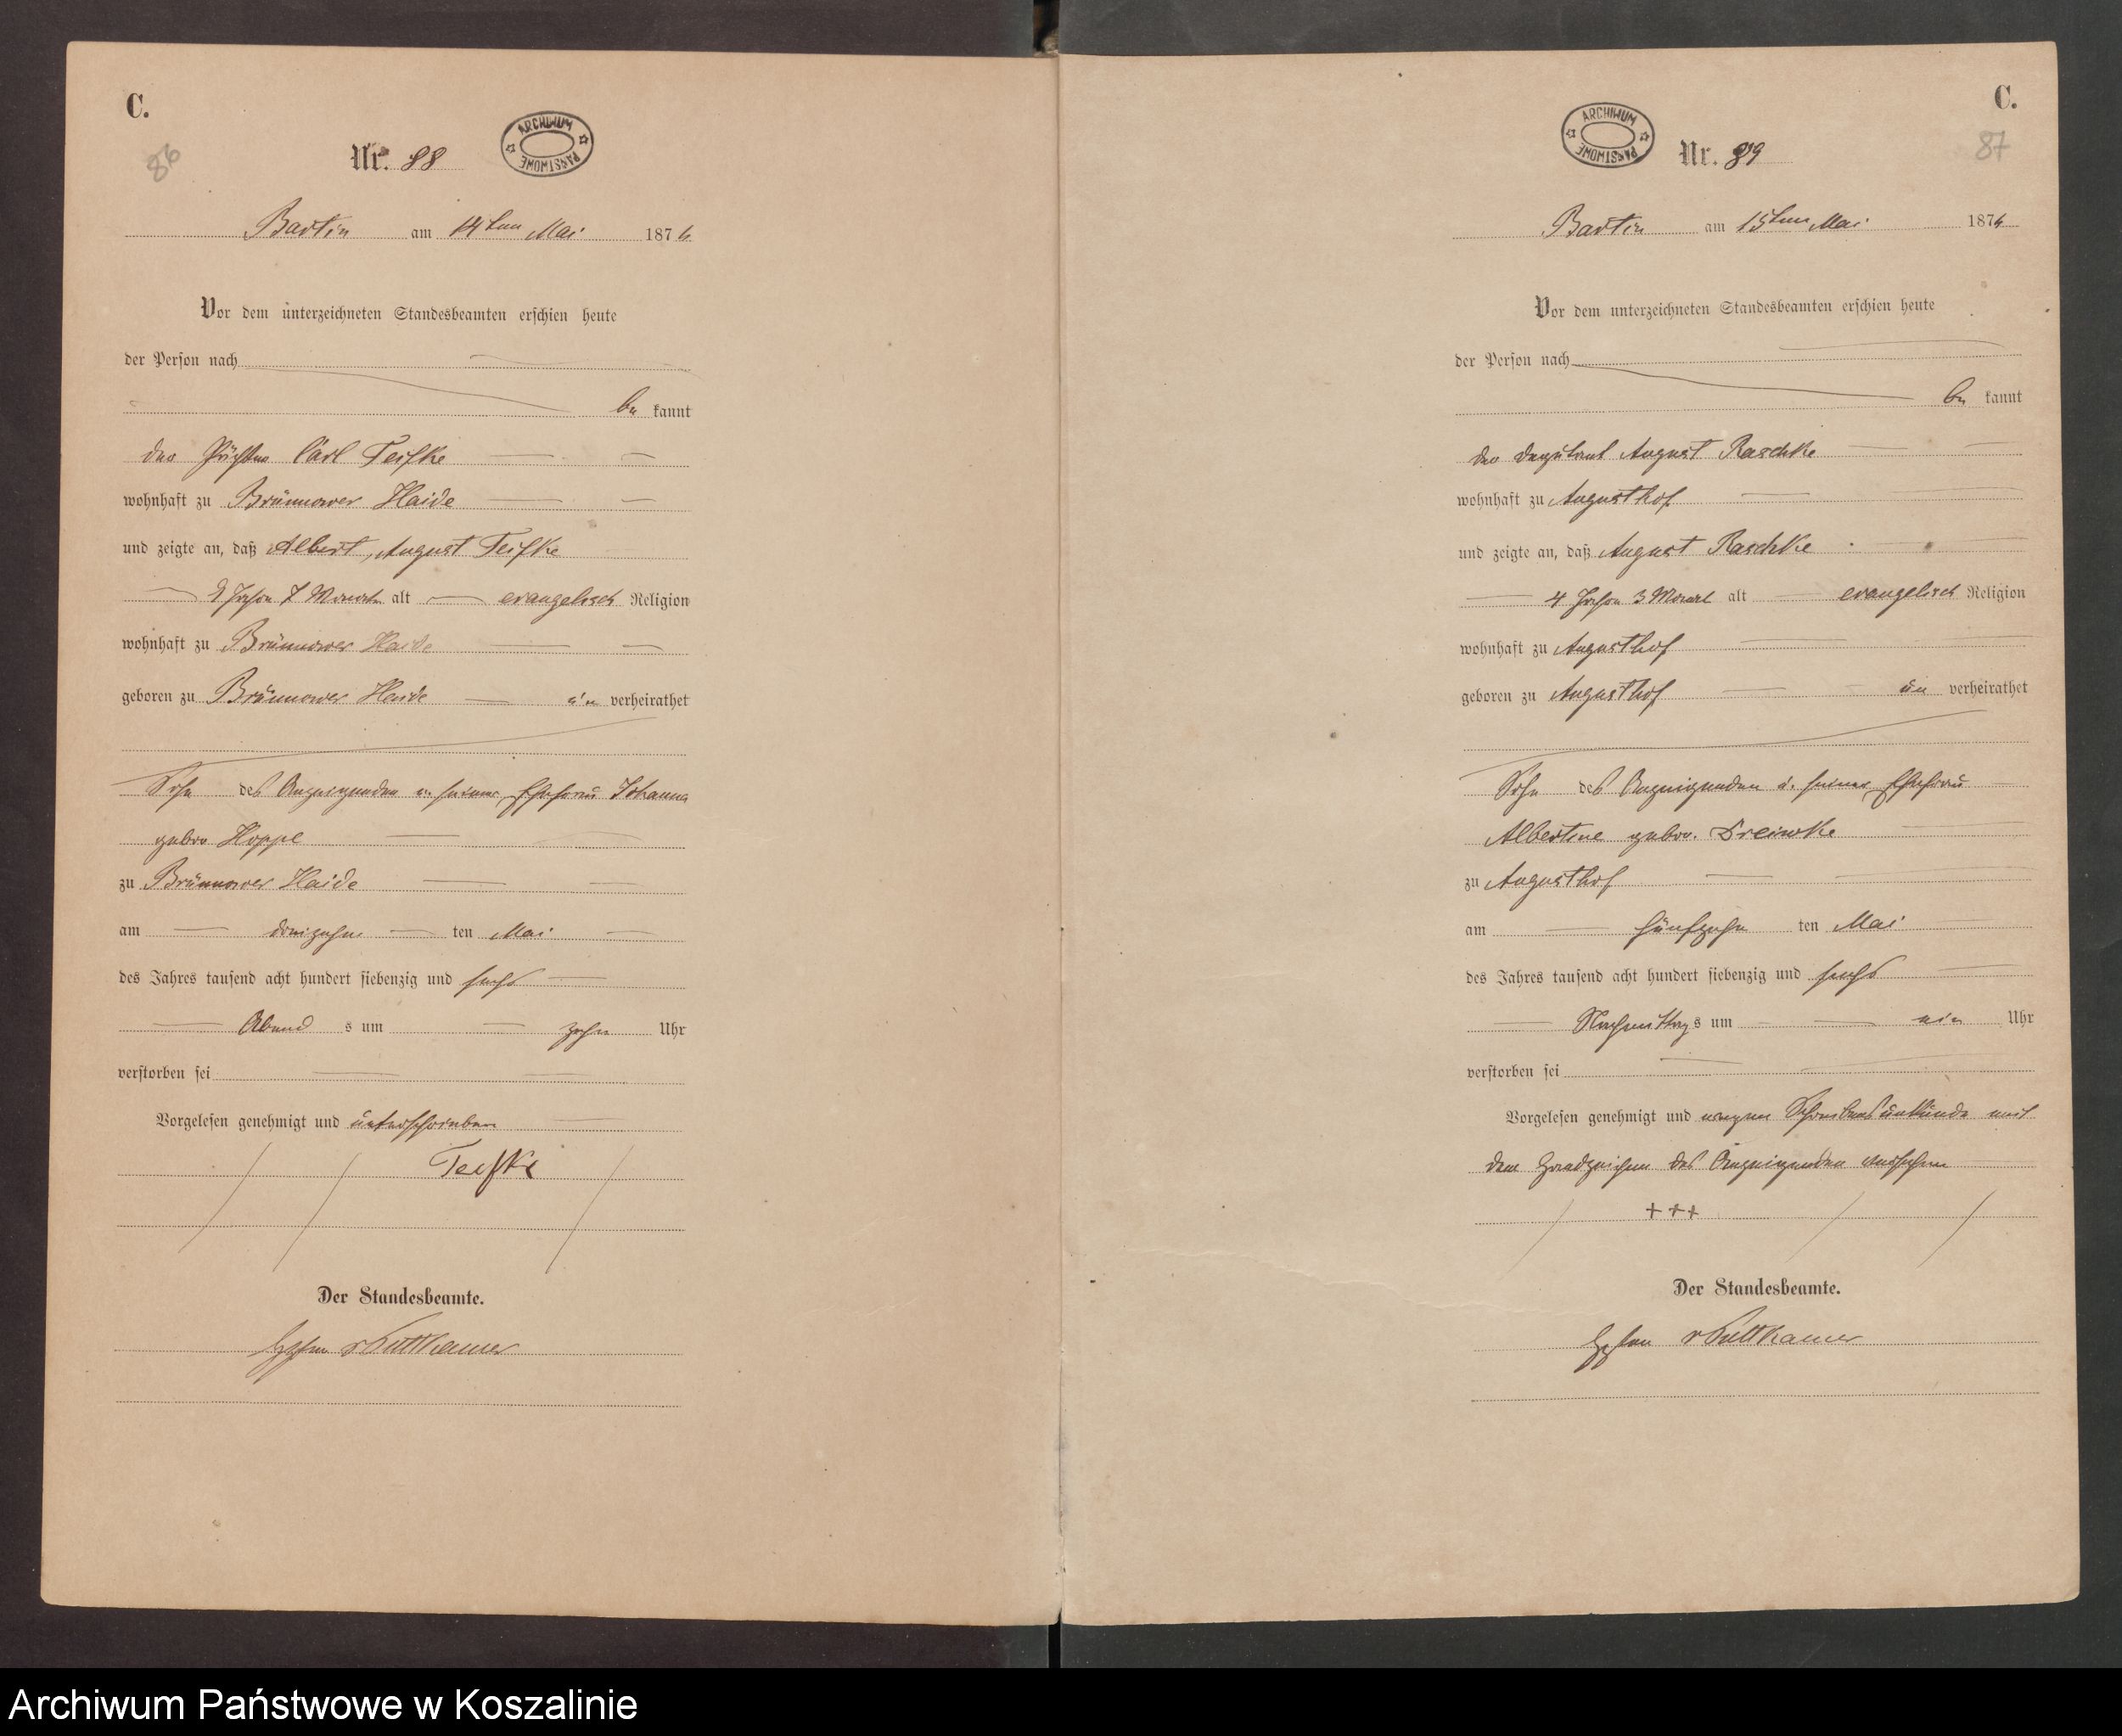 C.
86
Nr. 88
ARCHIWUM PAŃSTWOWE
Bartin am 14ten Mai 1876
Vor dem unterzeichneten Standesbeamten erschien heute
der Person nach
be kannt
der Pächter Carl Teifke
wohnhaft zu Brünnower Haide
und zeigte an, daß Albert, August Teifke
2 Jahre 7 Monate alt evangelisch Religion
wohnhaft zu Brünnower Haide
geboren zu Brünnower Haide un verheirathet
Sohn des Anzeigenden u. seiner Ehefrau Johanna
gebor Hoppe
zu Brünnower Haide
am dreizehn ten Mai
des Jahres tausend acht hundert siebenzig und sechs
Abend s um zehn Uhr
verstorben sei
Vorgelesen genehmigt und unterschrieben
Teifke
Der Standesbeamte.
vPuttkamer
C.
87
ARCHIWUM PAŃSTWOWE
Nr. 89
Bartin am 15ten Mai 1876
Vor dem unterzeichneten Standesbeamten erschien heute
der Person nach
be kannt
der Deputant August Raschke
wohnhaft zu Augusthof
und zeigte an, daß August Raschke
4 Jahre 3 Monat alt evangelisch Religion
wohnhaft zu Augusthof
geboren zu Augusthof un verheirathet
Sohn des Anzeigenden u. seiner Ehefrau
Albertine gebor.
zu Augusthof
am fünfzehn ten Mai
des Jahres tausend acht hundert siebenzig und sechs
Nachmittag s um ein Uhr
verstorben sei
Vorgelesen genehmigt und wegen Schreibensunkunde mit
dem Handzeichen des Anzeigenden versehen
+++
Der Standesbeamte.
vPuttkamer
Archiwum Państwowe w Koszalinie